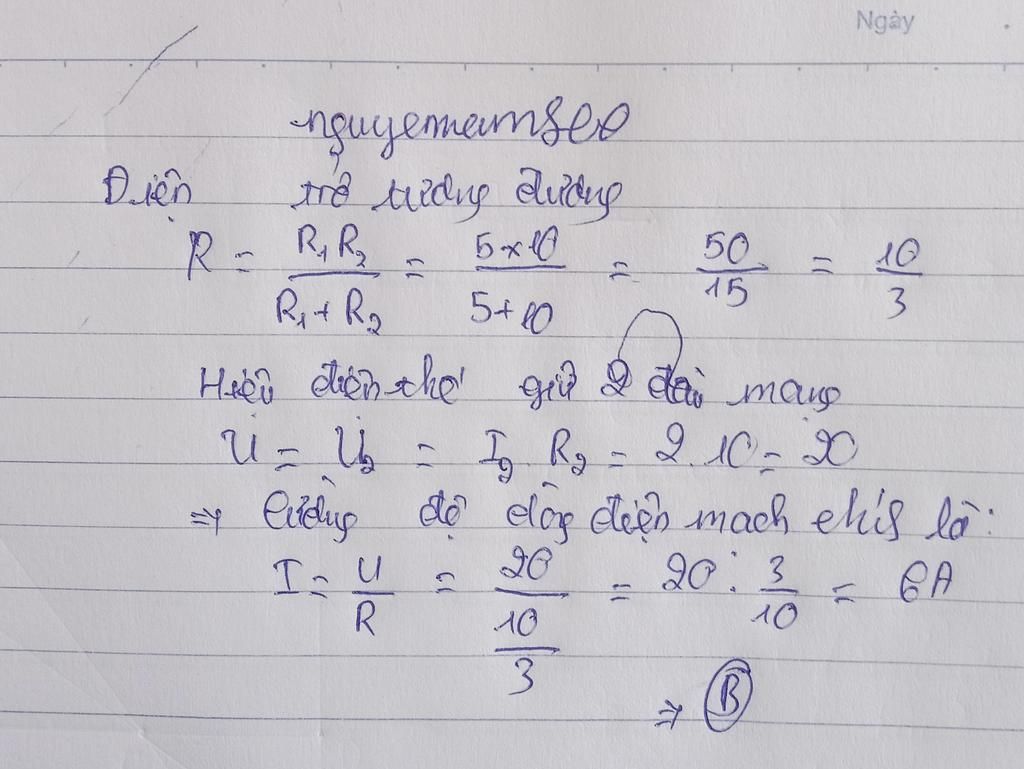 Ngày
nguyennamSEO
Điện trở tương đương
R = R₁R₂/(R₁+R₂) = 5×10/(5+10) = 50/15 = 10/3
Hiệu điện thế giữ 2 đầu mạng
U = U₂ = I₂ R₂ = 2.10 = 20
⇒ Cường độ dòng điện mạch chính là:
I = U/R = 20/(10/3) = 20 . 3/10 = 6A
⇒ B